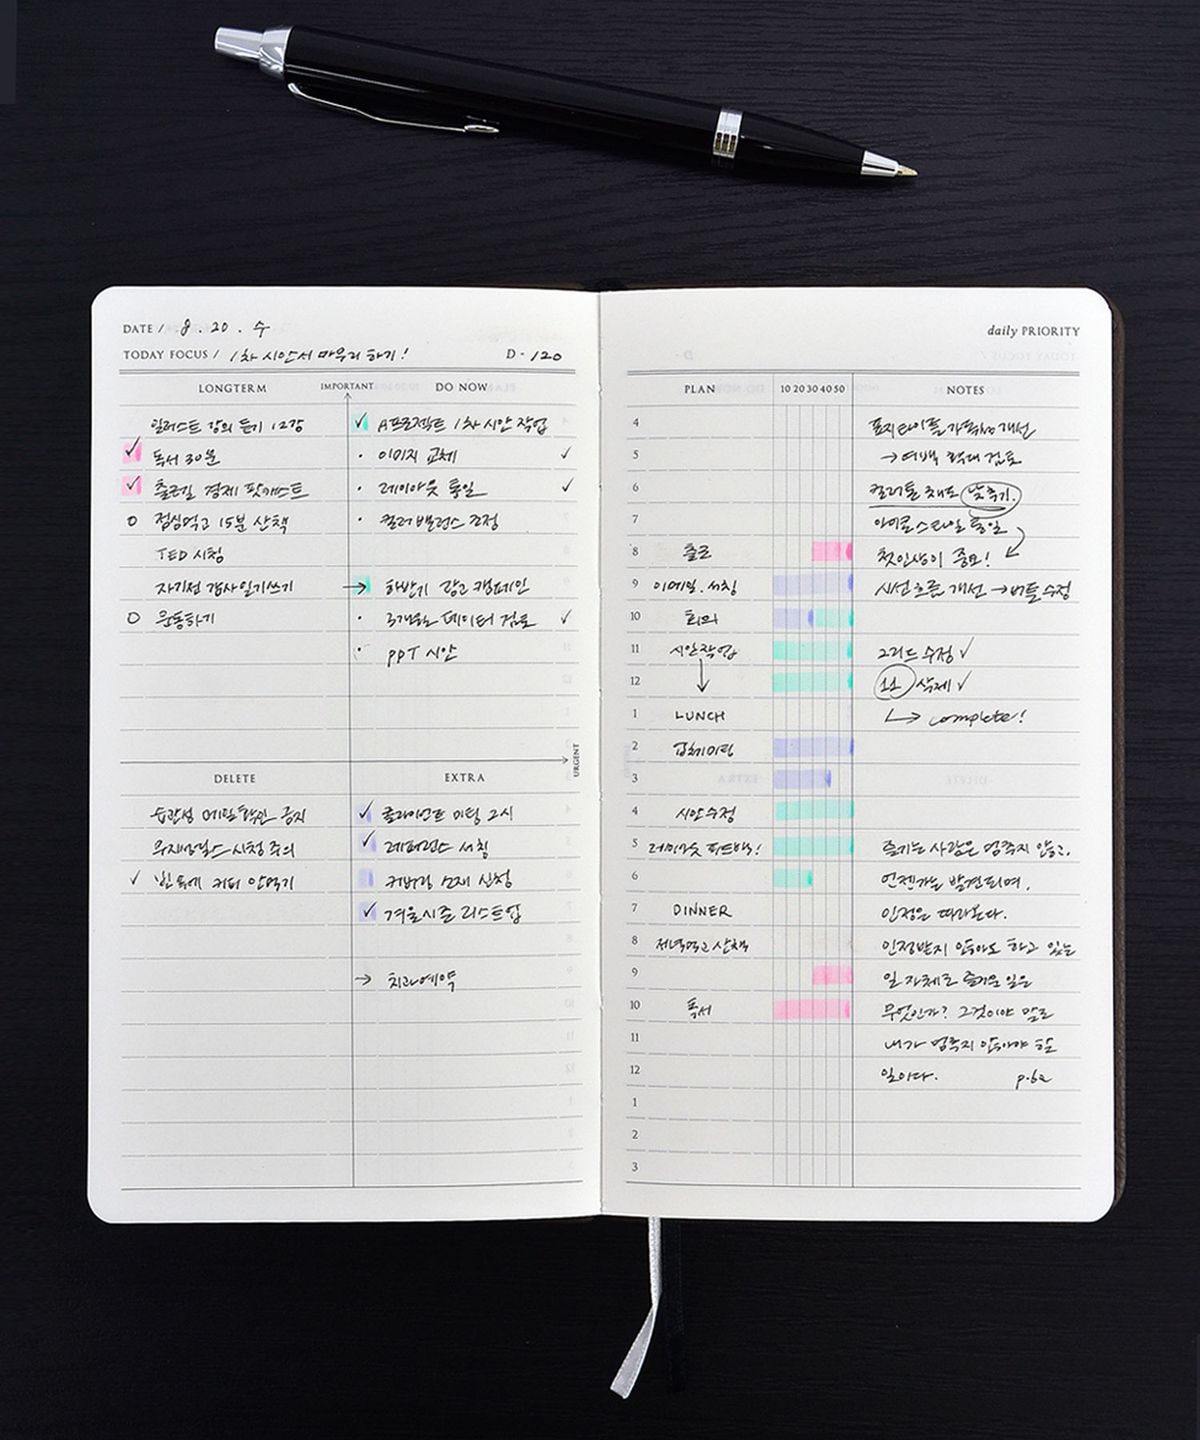 DATE / 8 . 20 . 수
TODAY FOCUS / 1차 시안서 마무리 하기!
D - 120
LONGTERM
IMPORTANT
DO NOW
일러스트 강의 듣기 12강
✓ 독서 30분
✓ 출근길 경제 팟캐스트
○ 점심먹고 15분 산책
TED 시청
자기전 감사일기쓰기
○ 운동하기
✓ A프로젝트 1차 시안 작업
· 이미지 교체 ✓
· 레이아웃 통일 ✓
· 컬러 밸런스 조정
→ 하반기 광고 캠페인
· 3개월 데이터 검토 ✓
· PPT 시안
URGENT
DELETE
EXTRA
습관성 메일확인 금지
무제한 시청 주의
✓ 빈속에 커피 안먹기
✓ 클라이언트 미팅 2시
✓ 레퍼런스 서칭
커버링 소재 신청
✓ 겨울시즌 리스트업
→ 치과예약
daily PRIORITY
PLAN
10 20 30 40 50
NOTES
4
5
6
7
8 출근
9 이메일. 서칭
10 회의
11 시안작업
12 ↓
1 LUNCH
2 업체미팅
3
4 시안수정
5 레이아웃 피드백!
6
7 DINNER
8 저녁먹고 산책
9
10 독서
11
12
1
2
3
표지 타이틀 가독성 개선
→ 여백 확대 검토
컬러톤 채도 낮추기.
아이콘 스타일 통일
첫인상이 중요!
시선 흐름 개선 → 버튼 수정
그리드 수정 ✓
11 삭제 ✓
↳ complete!
즐기는 사람은 멈추지 않고.
언젠가는 발견되며.
인정은 따라온다.
인정받지 않아도 하고 있는
일 자체로 즐거운 일은
무엇인가? 그것이야 말로
내가 멈추지 않아야 할
일이다. p.62